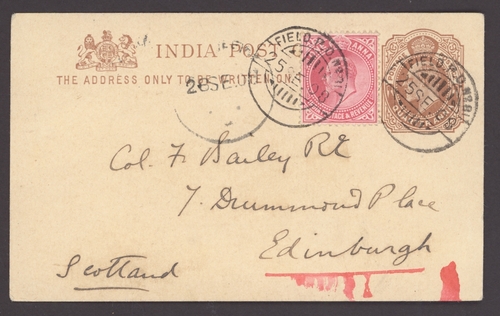 INDIA POST
THE ADDRESS ONLY TO BE WRITTEN ON
FIELD.P.O.No.
25SE
ANNA
POSTAGE & REVENUE
FIELD.P.O.No.
25SE
28SE
Col. F. Bailey RE
7. Drummond Place
Edinburgh
Scotland